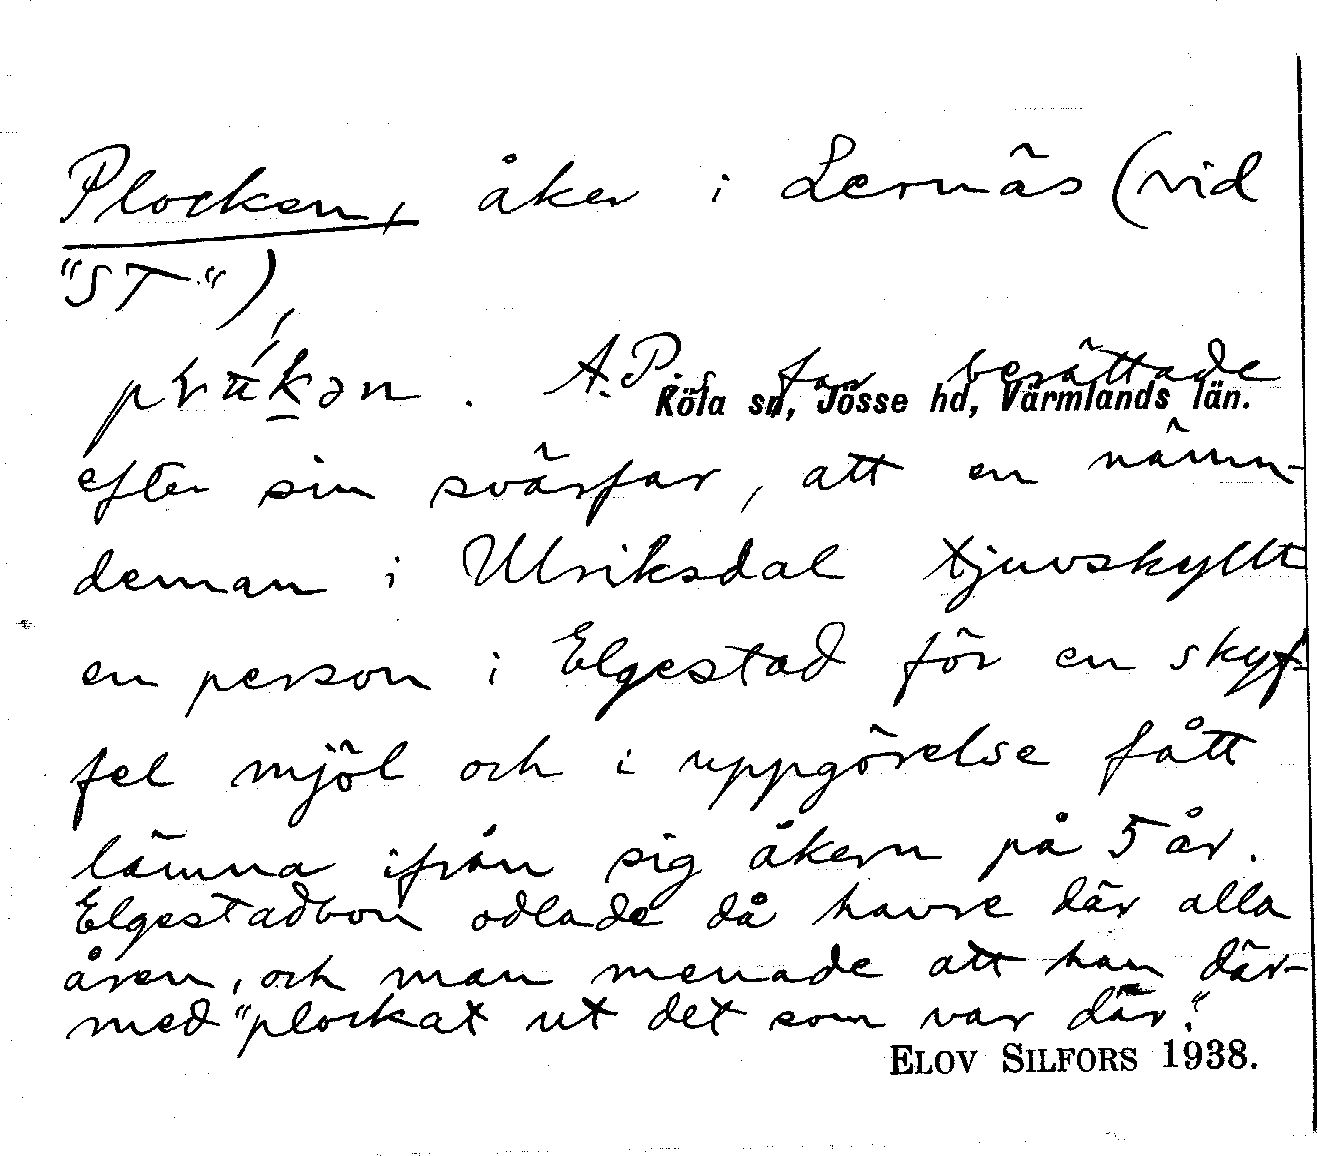 Plocken, åker i Lernäs (vid
"ST")
A.P.s far berättade
Köla sn, Jösse hd, Värmlands län.
efter sin svärfar, att en nämn-
deman i Ulriksdal tjuvskyllt
en person i Elgestad för en skyf-
fel mjöl och i uppgörelse fått
lämna ifrån sig åkern på 5 år.
Elgestadbon odlade då havre där alla
åren, och man menade att han där-
med "plockat ut det som var där."
ELOV SILFORS 1938.